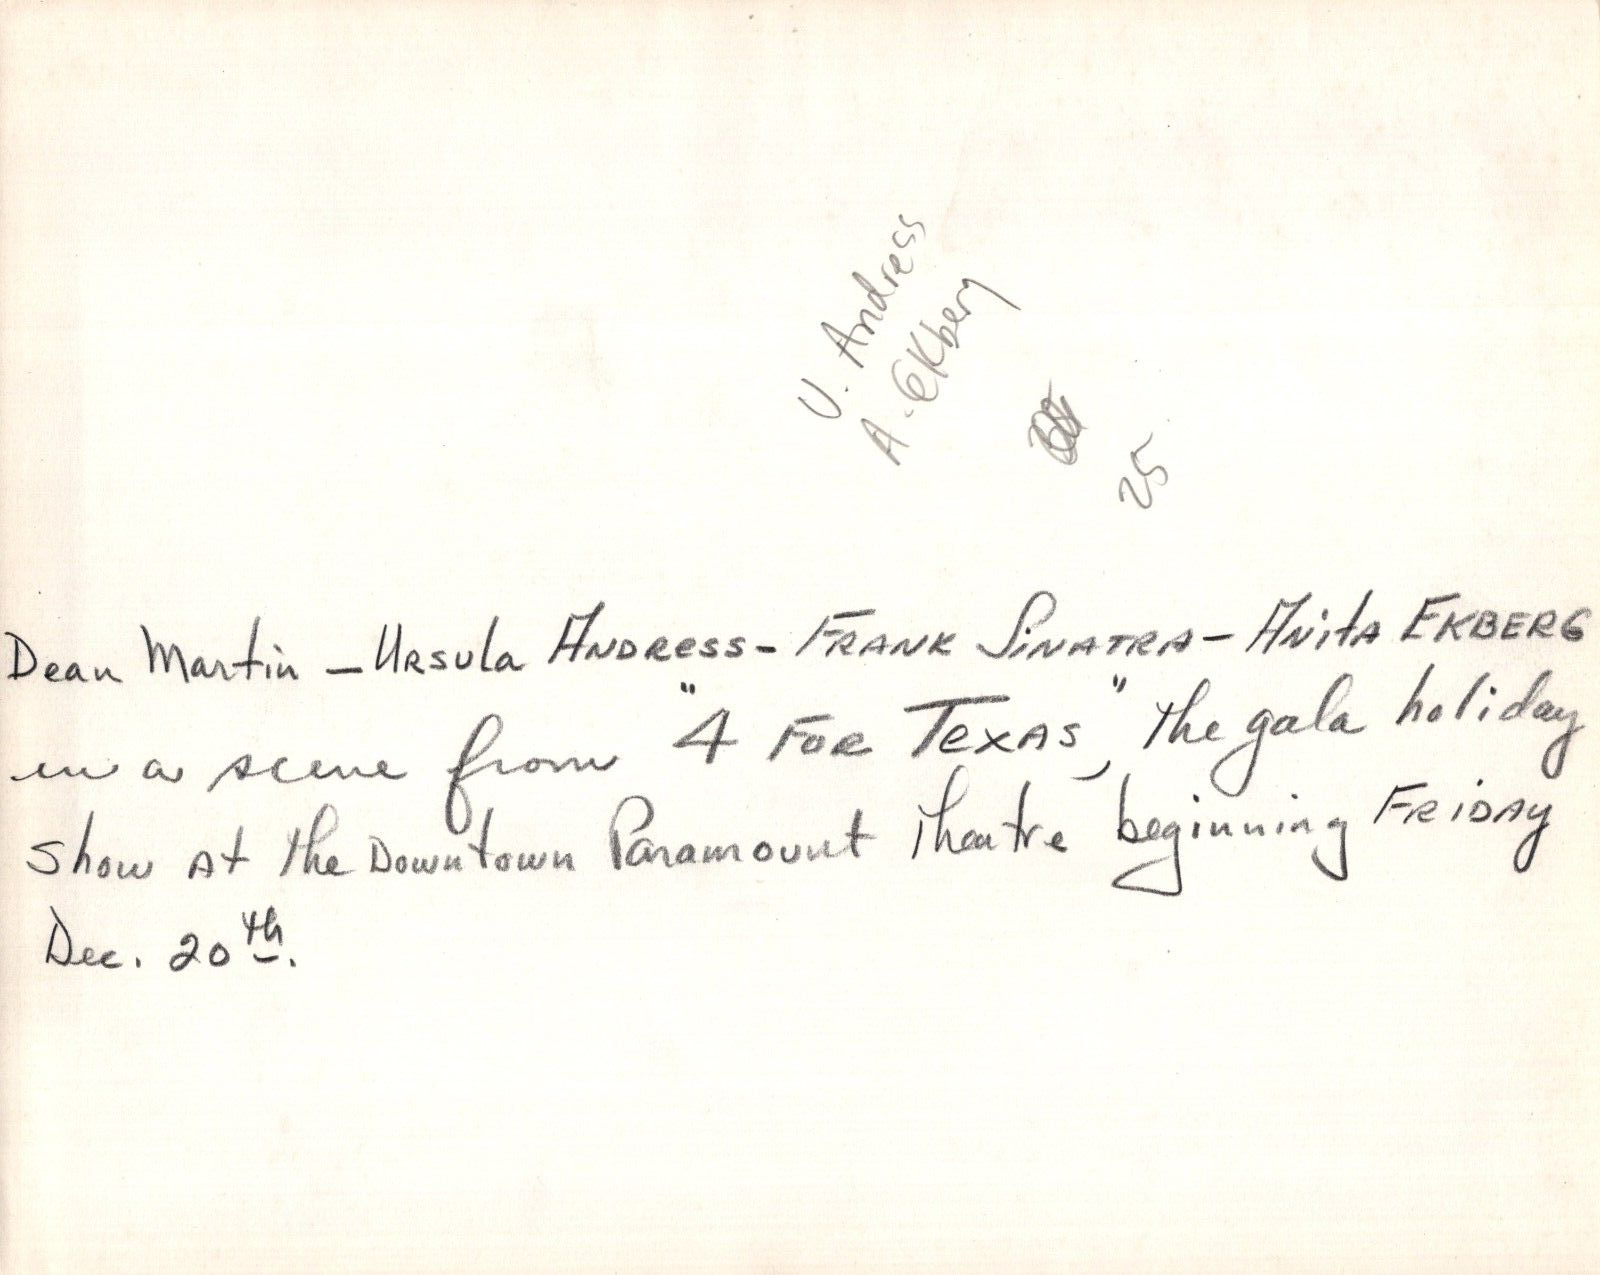 U. Andress
A. Ekberg
25
Dean Martin - Ursula Andress - Frank Sinatra - Anita Ekberg
in a scene from "4 For Texas", the gala holiday
show at the Downtown Paramount Theatre beginning Friday
Dec. 20th.